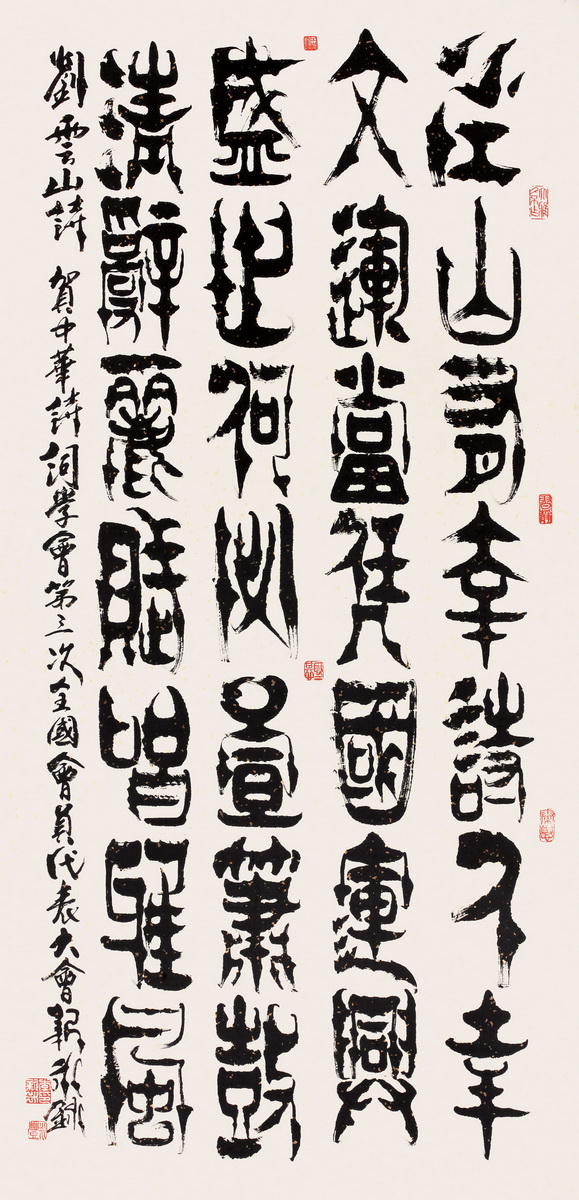 江山有幸詩人幸
文運當凭國運興
盛世何必喧簫鼓
清辭麗賦皆雅風
劉雲山詩 賀中華詩詞學會第三次全國會員代表大會